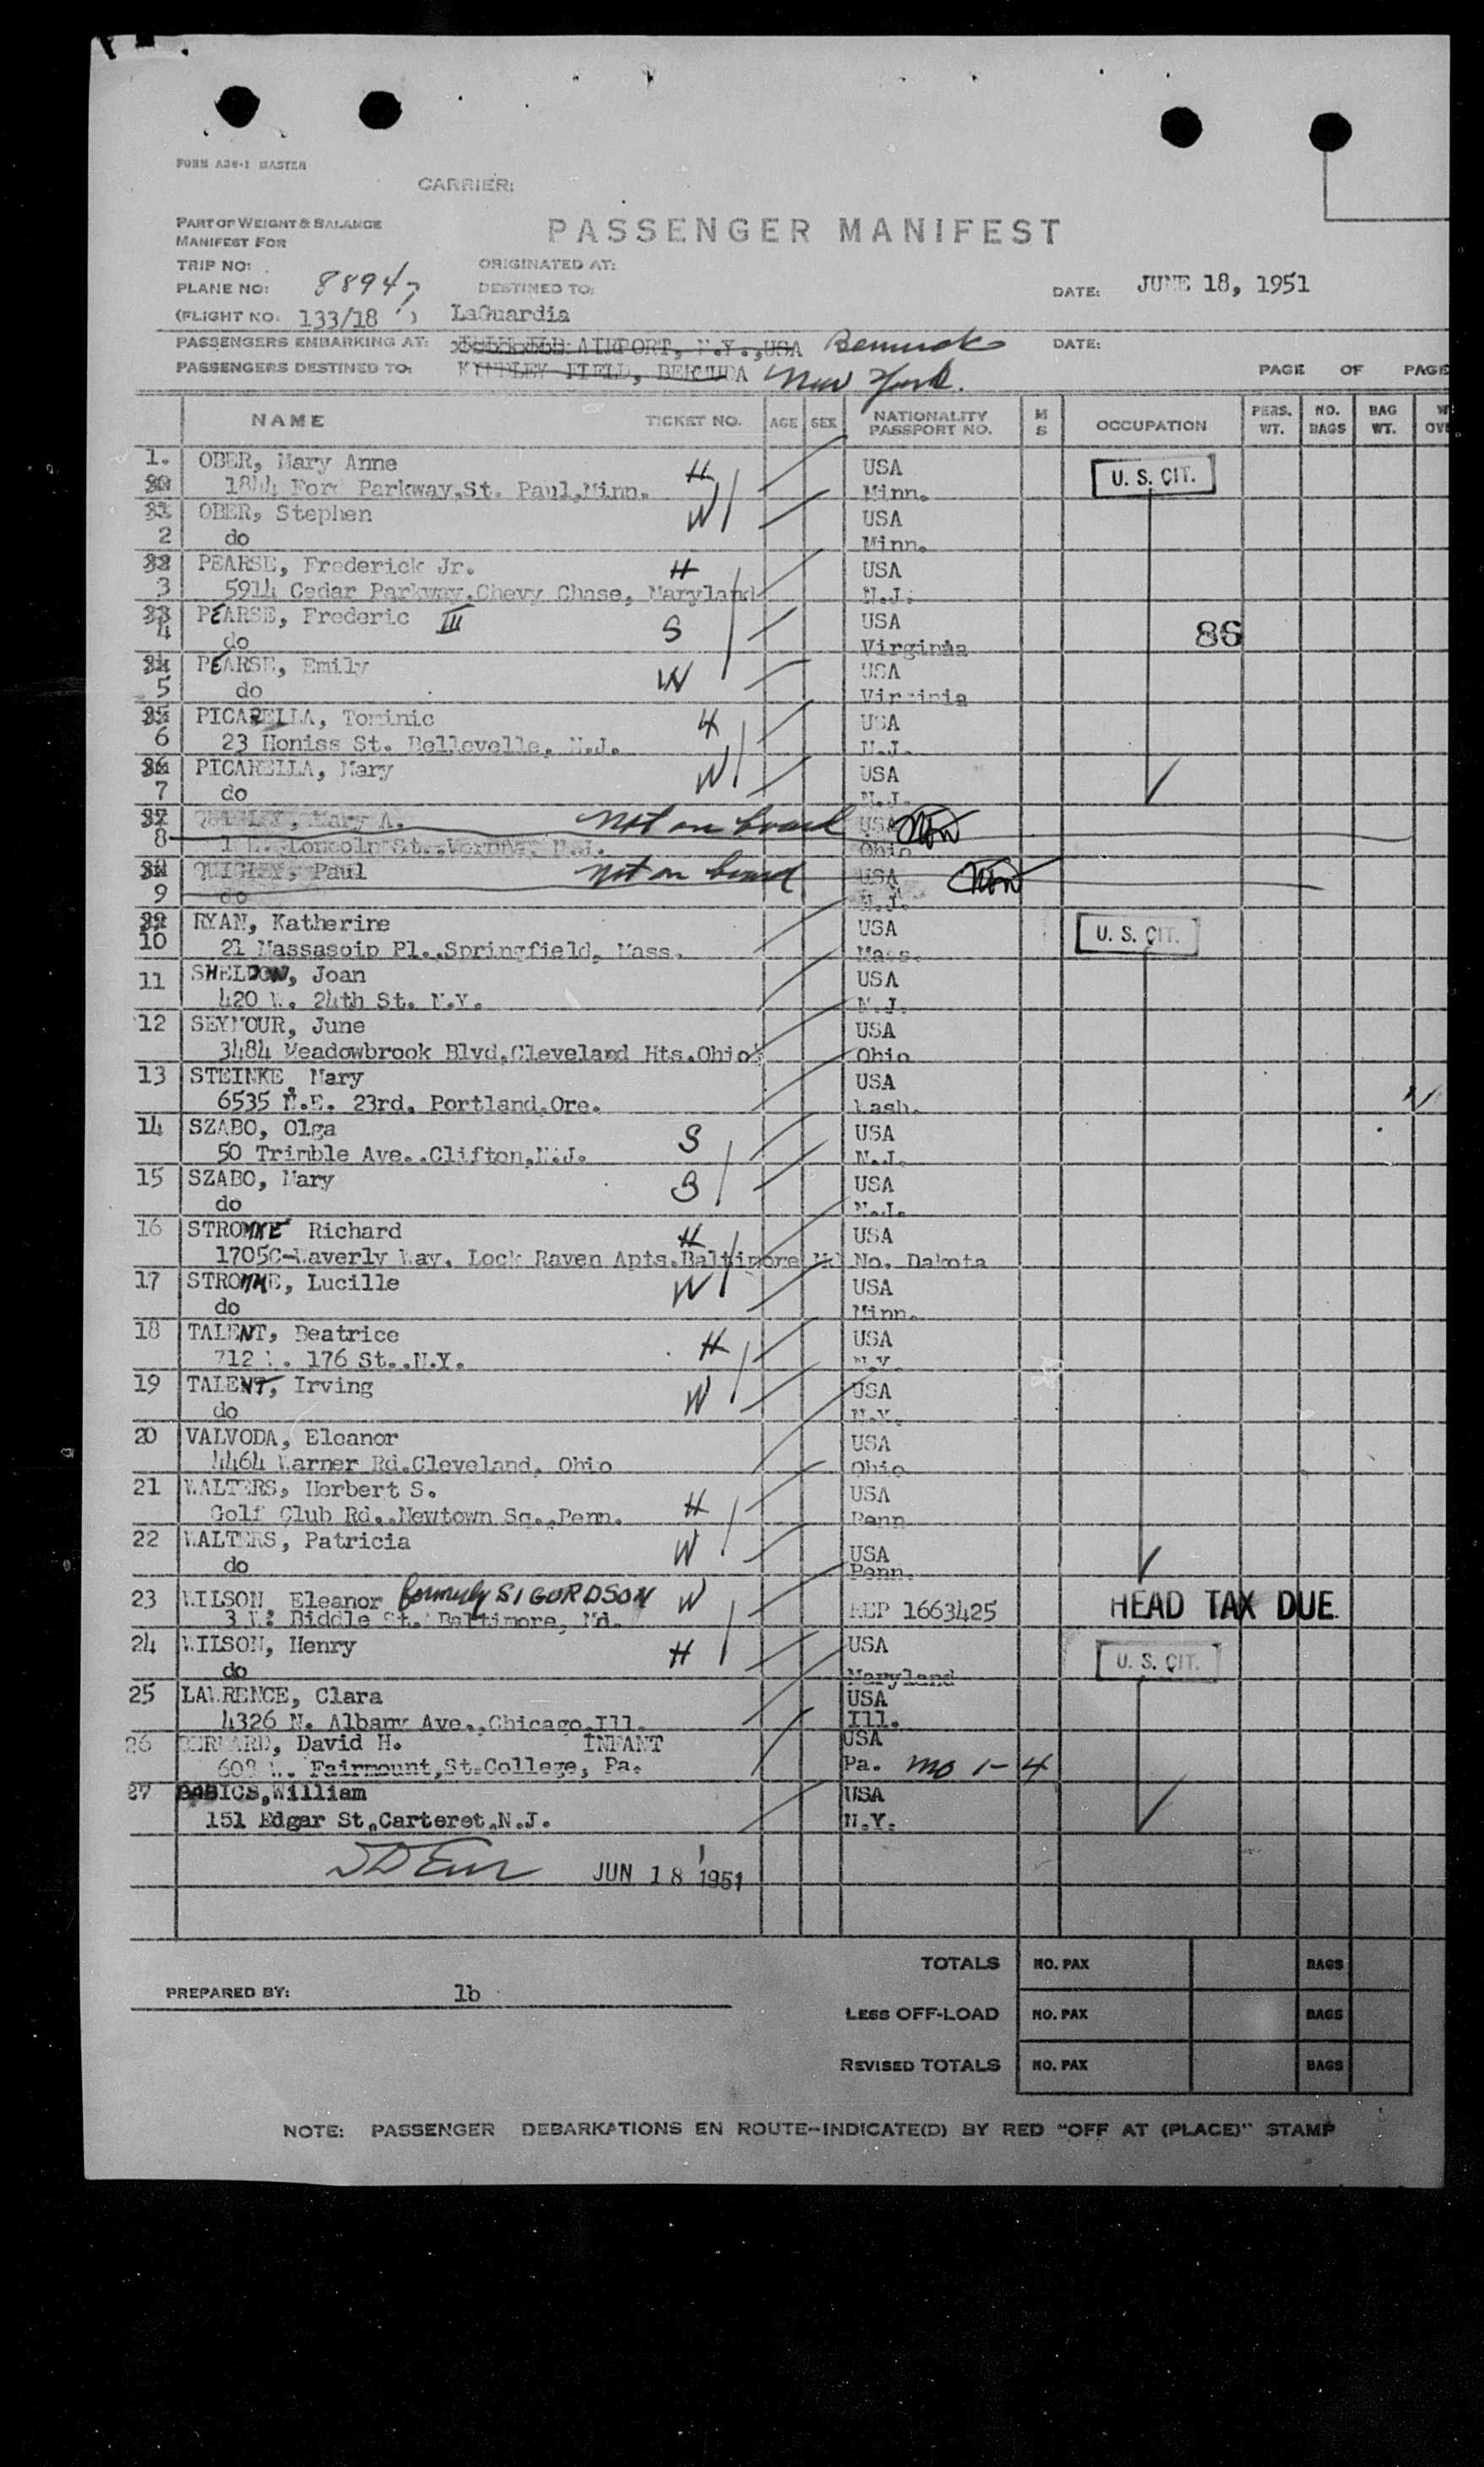 FORM A30-1 MASTER
CARRIER:
PART OF WEIGHT & BALANCE
MANIFEST FOR
PASSENGER MANIFEST
TRIP NO:
ORIGINATED AT:
PLANE NO: 88947
DESTINED TO:
DATE: JUNE 18, 1951
(FLIGHT NO. 133/18 ) LaGuardia
PASSENGERS EMBARKING AT: AIRPORT, N.Y.,USA Bermuda DATE:
PASSENGERS DESTINED TO: KINDLEY FIELD, BERMUDA New York. PAGE OF PAGE
NAME TICKET NO. AGE SEX NATIONALITY PASSPORT NO. M S OCCUPATION PERS. WT. NO. BAGS BAG WT.
1. OBER, Mary Anne H USA U. S. CIT.
30 1844 Ford Parkway,St. Paul,Minn. Minn.
31 OBER, Stephen W USA
2 do Minn.
32 PEARSE, Frederick Jr. H USA
3 5914 Cedar Parkway,Chevy Chase, Maryland N.J.
33 PEARSE, Frederic III S USA 86
4 do Virginia
34 PEARSE, Emily W USA
5 do Virginia
35 PICARELLA, Tominic H USA
6 23 Honiss St. Bellevelle, N.J. N.J.
36 PICARELLA, Mary W USA
7 do N.J.
37 QUIGLEY, Mary A. not on board USA
8 Loncoln St. N.J. Ohio
38 QUIGLEY, Paul not on board USA
9 do N.J.
39 RYAN, Katherine USA U. S. CIT.
10 21 Massasoip Pl.,Springfield, Mass. Mass.
11 SHELDON, Joan USA
420 W. 24th St. N.Y. N.J.
12 SEYMOUR, June USA
3484 Meadowbrook Blvd,Cleveland Hts.Ohio Ohio
13 STEINKE, Mary USA
6535 N.E. 23rd, Portland,Ore. Wash.
14 SZABO, Olga S USA
50 Trimble Ave.,Clifton,N.J. N.J.
15 SZABO, Mary S USA
do N.J.
16 STROMME Richard H USA
1705C-Waverly Way, Lock Raven Apts.Baltimore Md No. Dakota
17 STROMME, Lucille W USA
do Minn.
18 TALENT, Beatrice H USA
712 W. 176 St.,N.Y. N.Y.
19 TALENT, Irving W USA
do N.Y.
20 VALVODA, Eleanor USA
4464 Warner Rd.Cleveland, Ohio Ohio
21 WALTERS, Herbert S. H USA
Golf Club Rd.,Newtown Sq.,Penn. Penn
22 WALTERS, Patricia W USA
do Penn.
23 WILSON, Eleanor formerly SIGURDSON W REP 1663425 HEAD TAX DUE
3 W. Biddle St. Baltimore, Md.
24 WILSON, Henry H USA U. S. CIT.
do Maryland
25 LAWRENCE, Clara USA
4326 N. Albany Ave.,Chicago,Ill. Ill.
26 David H. INFANT USA
608 W. Fairmount,St.College, Pa. Pa. mo 1-4
27 BABICS,William USA
151 Edgar St,Carteret,N.J. N.Y.
JUN 18 1951
TOTALS NO. PAX BAGS
PREPARED BY: lb
LESS OFF-LOAD NO. PAX BAGS
REVISED TOTALS NO. PAX BAGS
NOTE: PASSENGER DEBARKATIONS EN ROUTE--INDICATE(D) BY RED "OFF AT (PLACE)" STAMP